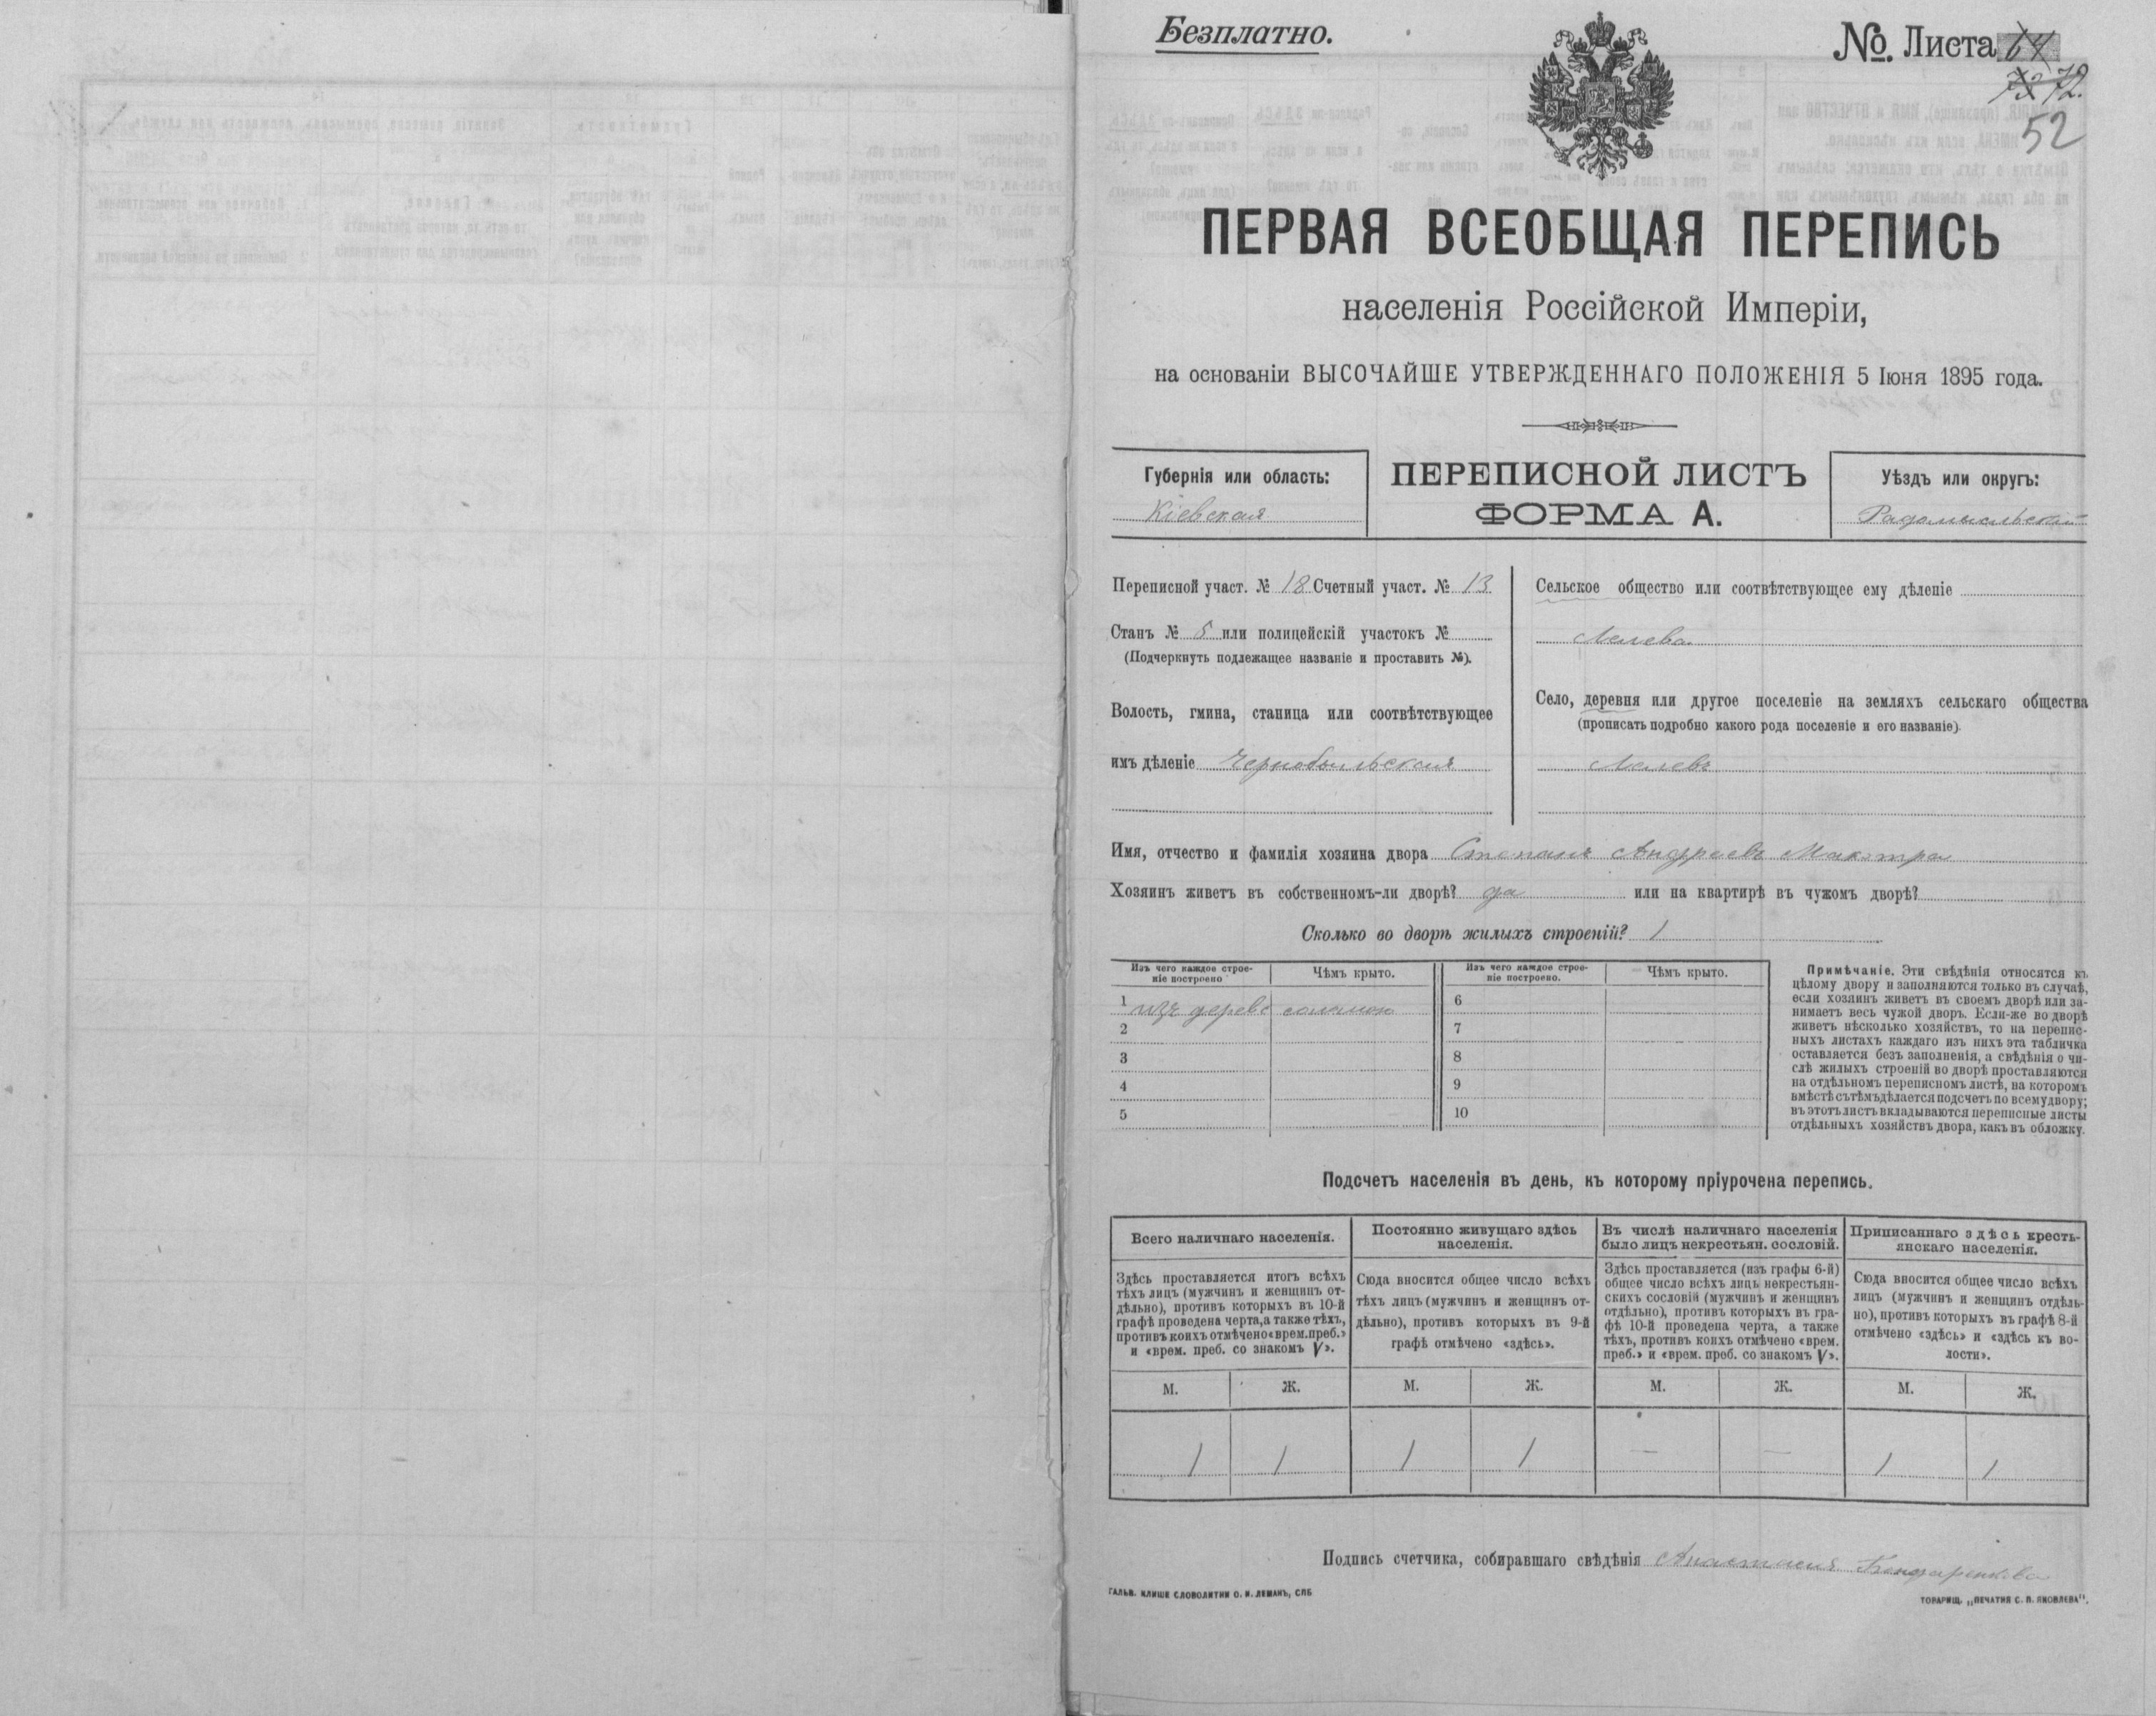 Безплатно.
№. Листа 64
73 72.
52
ПЕРВАЯ ВСЕОБЩАЯ ПЕРЕПИСЬ
населенія Россійской Имперіи,
на основаніи ВЫСОЧАЙШЕ УТВЕРЖДЕННАГО ПОЛОЖЕНІЯ 5 Іюня 1895 года.
Губернія или область:
Кіевская
ПЕРЕПИСНОЙ ЛИСТЪ
ФОРМА А.
Уѣздъ или округъ:
Радомысльскій
Переписной участ. № 18 Счетный участ. № 13
Станъ № 5 или полицейскій участокъ №
(Подчеркнуть подлежащее названіе и проставить №).
Волость, гмина, станица или соотвѣтствующее
имъ дѣленіе Чернобыльская
Сельское общество или соотвѣтствующее ему дѣленіе
Лелева
Село, деревня или другое поселеніе на земляхъ сельскаго общества
(прописать подробно какого рода поселеніе и его названіе).
Лелевъ
Имя, отчество и фамилія хозяина двора Степанъ Андреевъ Макотра
Хозяинъ живетъ въ собственномъ-ли дворѣ? да или на квартирѣ въ чужомъ дворѣ?
Сколько во дворѣ жилыхъ строеній? 1
Изъ чего каждое строе-
ніе построено
Чѣмъ крыто.
Изъ чего каждое строе-
ніе построено.
Чѣмъ крыто.
1 изъ дерева соломою
2
3
4
5
6
7
8
9
10
Примѣчаніе. Эти свѣдѣнія относятся къ
цѣлому двору и заполняются только въ случаѣ,
если хозяинъ живетъ въ своемъ дворѣ или за-
нимаетъ весь чужой дворъ. Если-же во дворѣ
живетъ нѣсколько хозяйствъ, то на перепис-
ныхъ листахъ каждаго изъ нихъ эта табличка
оставляется безъ заполненія, а свѣдѣнія о чи-
слѣ жилыхъ строеній во дворѣ проставляются
на отдѣльномъ переписномъ листѣ, на которомъ
вмѣстѣ съ тѣмъ дѣлается подсчетъ по всему двору;
въ этотъ листъ вкладываются переписные листы
отдѣльныхъ хозяйствъ двора, какъ въ обложку.
Подсчетъ населенія въ день, къ которому пріурочена перепись.
Всего наличнаго населенія.
Здѣсь проставляется итогъ всѣхъ
тѣхъ лицъ (мужчинъ и женщинъ от-
дѣльно), противъ которыхъ въ 10-й
графѣ проведена черта, а также тѣхъ,
противъ коихъ отмѣчено «врем. преб.»
и «врем. преб. со знакомъ V».
Постоянно живущаго здѣсь
населенія.
Сюда вносится общее число всѣхъ
тѣхъ лицъ (мужчинъ и женщинъ от-
дѣльно), противъ которыхъ въ 9-й
графѣ отмѣчено «здѣсь».
Въ числѣ наличнаго населенія
было лицъ некрестьян. сословій.
Здѣсь проставляется (изъ графы 6-й)
общее число всѣхъ лицъ некрестьян-
скихъ сословій (мужчинъ и женщинъ
отдѣльно), противъ которыхъ въ гра-
фѣ 10-й проведена черта, а также
тѣхъ, противъ коихъ отмѣчено «врем.
преб.» и «врем. преб. со знакомъ V».
Приписаннаго здѣсь кресть-
янскаго населенія.
Сюда вносится общее число всѣхъ
лицъ (мужчинъ и женщинъ отдѣль-
но), противъ которыхъ въ графѣ 8-й
отмѣчено «здѣсь» и «здѣсь къ во-
лости».
М. Ж. М. Ж. М. Ж. М. Ж.
1 1 1 1 — — 1 1
Подпись счетчика, собиравшаго свѣдѣнія Анастасия Бондаренкова
ГАЛЬВ. КЛИШЕ СЛОВОЛИТНИ О. И. ЛЕМАНЪ, СПБ
ТОВАРИЩ. „ПЕЧАТНЯ С. П. ЯКОВЛЕВА".